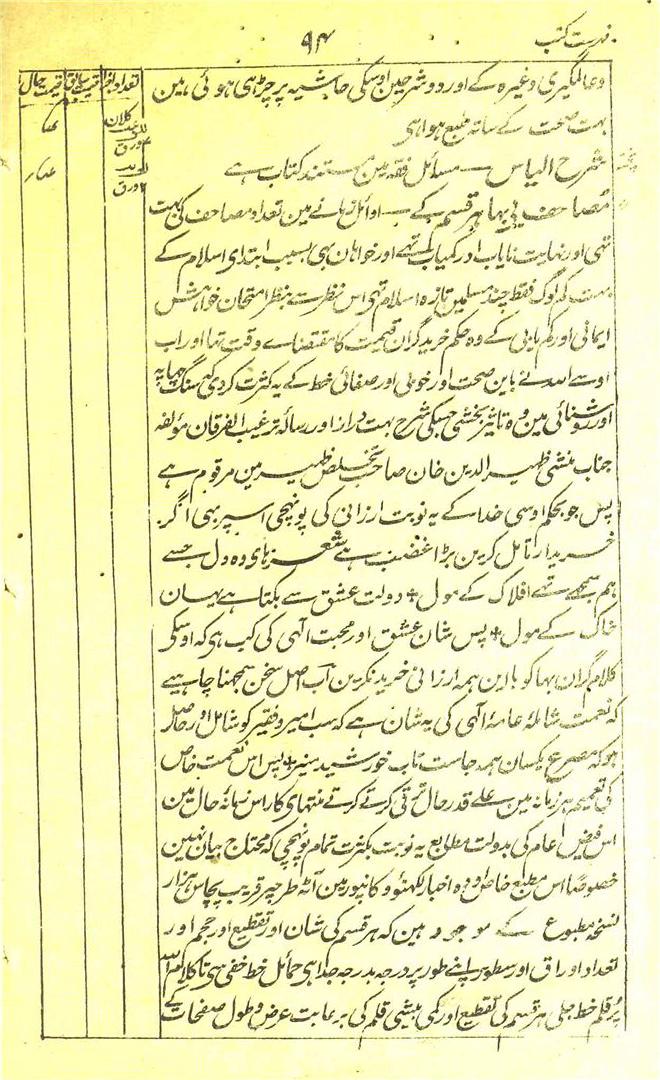 فہرست کتب
۹۴
تعداد اجزا قیمت سابق قیمت حال
و عالمگیری وغیرہ کے اور دو شرحین اوسکی حاشیہ پر چڑہی ہوئی ہین
بہت صحت کے ساتہ طبع ہوا ہی
کلان
ورق
شرح الیاس — مسائل فقہ مین مستند کتاب ہے
ورق
مصاحف بی بہا ہر قسم کے — اوائل زمانے مین تعداد مصاحف کی بہت
تہی اور نہایت نایاب اور کمیاب تہے اور خواہان بہی بسبب ابتدای اسلام کے
بہت کم لوگ فقط چند مسلمین تازہ اسلام تہی اس نظر سے بنظر امتحان خواہش
ایمانی اور کم یابی کے وہ حکم خرید گران قیمت کا مقتضاے وقت تہا اور اب
اوسے اللہ نے باین صحت اور خوبی اور صفائی خط کے یہ کثرت کردی کہ سنگ چہاپہ
اور روشنائی مین وہ تاثیر بخشی جسکی شرح بہت دراز اور رسالہ ترغیب الفرقان مؤلفہ
جناب منشی ظہیر الدین خان صاحب تخلص ظہیر مین مرقوم ہے
پس جو بحکم اوسی خدا کے یہ نوبت ارزانی کی پونہچی اسپر بہی اگر
خریدار تامل کرین بڑا غضب ہے شعر ہای وہ دل جسے
ہم سمجہے تہے افلاک کے مول + دولت عشق سے بکتا ہے یہان
خاک کے مول + پس شان عشق اور محبت الہی کی کب ہی کہ اوسکی
کلام گران بہا کو با این ہمہ ارزانی خرید نکرین اب اصل سخن سمجہنا چاہیے
کہ نعمت شاملۂ عامۂ الہی کی یہ شان ہے کہ سب امیر و فقیر کو شامل اور حاصل
ہو کہ مصرع یکسان ہمہ جاست تاب خورشید منیر + پس اس نعمت خاص
کی تعمیم ہر زمانہ مین علے قدر حال ترقی کرتے کرتے منتہای کار اس زمانۂ حال مین
اس فیض عام کی بدولت مطابع یہ نوبت بکثرت تمام پونہچی کہ محتاج بیان نہین
خصوصاً اس مطبع خاص اودہ اخبار لکہنؤ و کانپور مین آٹہ طرحپر قریب پچاس ہزار
نسخہ مطبوع کے موجود ہین کہ ہر قسم کی شان اور تقطیع اور حجم اور
تعداد اوراق اور سطور اپنے طور پر درجہ بدرجہ جدا ہی حمائل خط خفی ہی تا کلام اللہ
پُر قلم خط جلی ہر قسم کی تقطیع اور کمی بیشی قلم کی بہ رعایت عرض و طول صفحات کے